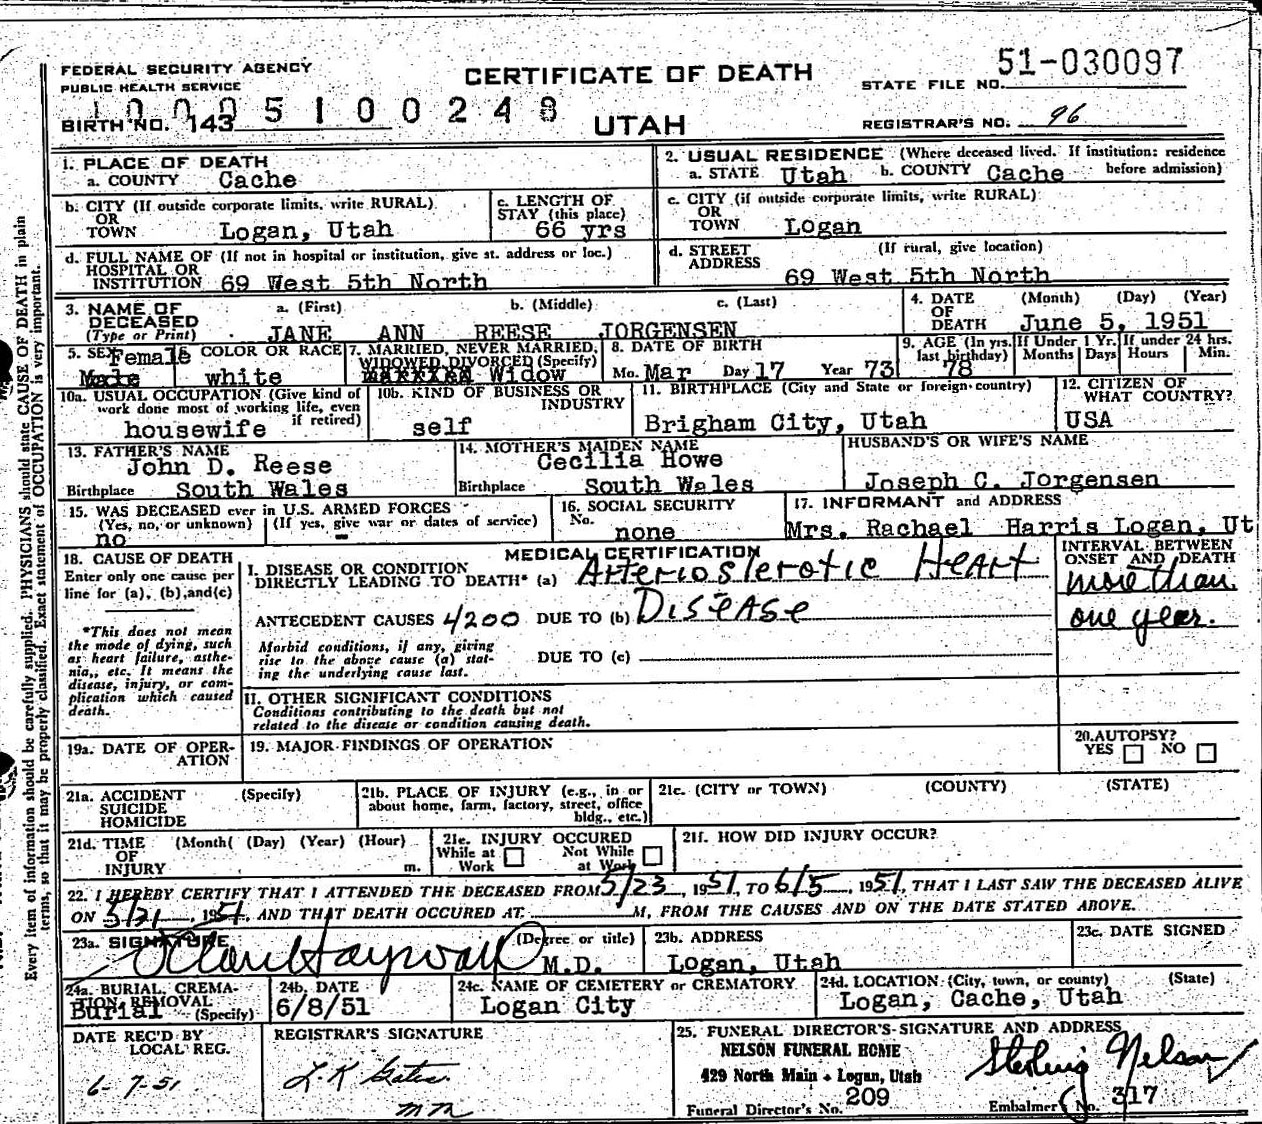 FEDERAL SECURITY AGENCY
PUBLIC HEALTH SERVICE
CERTIFICATE OF DEATH
STATE FILE NO. 51-030097
BIRTH NO. 143
UTAH
REGISTRAR'S NO. 96
1. PLACE OF DEATH
a. COUNTY Cache
2. USUAL RESIDENCE (Where deceased lived. If institution: residence before admission)
a. STATE Utah b. COUNTY Cache
b. CITY (If outside corporate limits, write RURAL)
OR
TOWN Logan, Utah
c. LENGTH OF
STAY (this place)
66 yrs
c. CITY (if outside corporate limits, write RURAL)
OR
TOWN Logan
d. FULL NAME OF (If not in hospital or institution, give st. address or loc.)
HOSPITAL OR
INSTITUTION 69 West 5th North
d. STREET (If rural, give location)
ADDRESS
69 West 5th North
3. NAME OF a. (First) b. (Middle) c. (Last)
DECEASED
(Type or Print) JANE ANN REESE JORGENSEN
4. DATE (Month) (Day) (Year)
OF
DEATH June 5, 1951
5. SEX Female
COLOR OR RACE
white
7. MARRIED, NEVER MARRIED,
WIDOWED DIVORCED (Specify)
Widow
8. DATE OF BIRTH
Mo. Mar Day 17 Year 73
9. AGE (In yrs. last birthday)
78
If Under 1 Yr. If under 24 hrs.
Months Days Hours Min.
10a. USUAL OCCUPATION (Give kind of
work done most of working life, even
if retired)
housewife
10b. KIND OF BUSINESS OR
INDUSTRY
self
11. BIRTHPLACE (City and State or foreign country)
Brigham City, Utah
12. CITIZEN OF
WHAT COUNTRY?
USA
13. FATHER'S NAME
John D. Reese
Birthplace South Wales
14. MOTHER'S MAIDEN NAME
Cecilia Howe
Birthplace South Wales
HUSBAND'S OR WIFE'S NAME
Joseph C. Jorgensen
15. WAS DECEASED ever in U.S. ARMED FORCES
(Yes, no, or unknown) (If yes, give war or dates of service)
no -
16. SOCIAL SECURITY
No. none
17. INFORMANT and ADDRESS
Mrs. Rachael Harris Logan, Ut
18. CAUSE OF DEATH
Enter only one cause per
line for (a), (b), and (c)
*This does not mean
the mode of dying, such
as heart failure, asthe-
nia,, etc. It means the
disease, injury, or com-
plication which caused
death.
MEDICAL CERTIFICATION
I. DISEASE OR CONDITION
DIRECTLY LEADING TO DEATH* (a) Arteriosclerotic Heart
ANTECEDENT CAUSES 4200 DUE TO (b) Disease
Morbid conditions, if any, giving
rise to the above cause (a) stat-
ing the underlying cause last.
DUE TO (c)
INTERVAL BETWEEN
ONSET AND DEATH
more than
one year.
II. OTHER SIGNIFICANT CONDITIONS
Conditions contributing to the death but not
related to the disease or condition causing death.
19a. DATE OF OPER-
ATION
19. MAJOR FINDINGS OF OPERATION
20. AUTOPSY?
YES NO
21a. ACCIDENT (Specify)
SUICIDE
HOMICIDE
21b. PLACE OF INJURY (e.g., in or
about home, farm, factory, street, office
bldg., etc.)
21c. (CITY or TOWN) (COUNTY) (STATE)
21d. TIME (Month( (Day) (Year) (Hour)
OF
INJURY m.
21e. INJURY OCCURED
While at Work Not While at Work
21f. HOW DID INJURY OCCUR?
22. I HEREBY CERTIFY THAT I ATTENDED THE DECEASED FROM 5/23, 1951, TO 6/5, 1951, THAT I LAST SAW THE DECEASED ALIVE
ON 5/31, 1951, AND THAT DEATH OCCURED AT M, FROM THE CAUSES AND ON THE DATE STATED ABOVE.
23a. SIGNATURE (Degree or title)
M.D.
23b. ADDRESS
Logan, Utah
23c. DATE SIGNED
24a. BURIAL, CREMA-
TION, REMOVAL
Burial (Specify)
24b. DATE
6/8/51
24c. NAME OF CEMETERY or CREMATORY
Logan City
24d. LOCATION (City, town, or county) (State)
Logan, Cache, Utah
DATE REC'D BY
LOCAL REG.
6-7-51
REGISTRAR'S SIGNATURE
mm
25. FUNERAL DIRECTOR'S SIGNATURE AND ADDRESS
NELSON FUNERAL HOME
429 North Main - Logan, Utah
Sterling Nelson
Funeral Director's No. 209
Embalmer No. 317
Every item of information should be carefully supplied. PHYSICIANS should state CAUSE OF DEATH in plain
terms, so that it may be properly classified. Exact statement of OCCUPATION is very important.